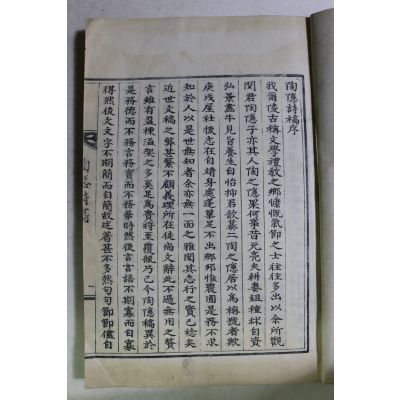 陶隱詩稿序
我爾陵古稱文學禮教之鄉慷慨氣節之士往往多出以余所觀
閔君陶隱子亦其人陶之隱果何事音元亮夫耕妻鉏種秫自資
弘景畵牛見旨養生自怡抑君歆慕二陶之隱居以爲稱號者歟
庚戌屋社後志在自靖身處蓬蓽足不出鄕邦惟農圃是務不求
知於人以是世無知者余亦無一面之雅聞其行之實已稔矣
近世文稿之弊甚繁不顧義理所在徒尙文辭此不過無用之贅
言雖有盈棟溢架之多奚爲貴將至覆瓿乃已今陶隱稿異於
是務德而不務言務實而不務華時然後言言語不期寡而自寡
得然後文文字不期簡而自簡故述著甚不多然句句節節儘自
陶隱詩稿
序
一